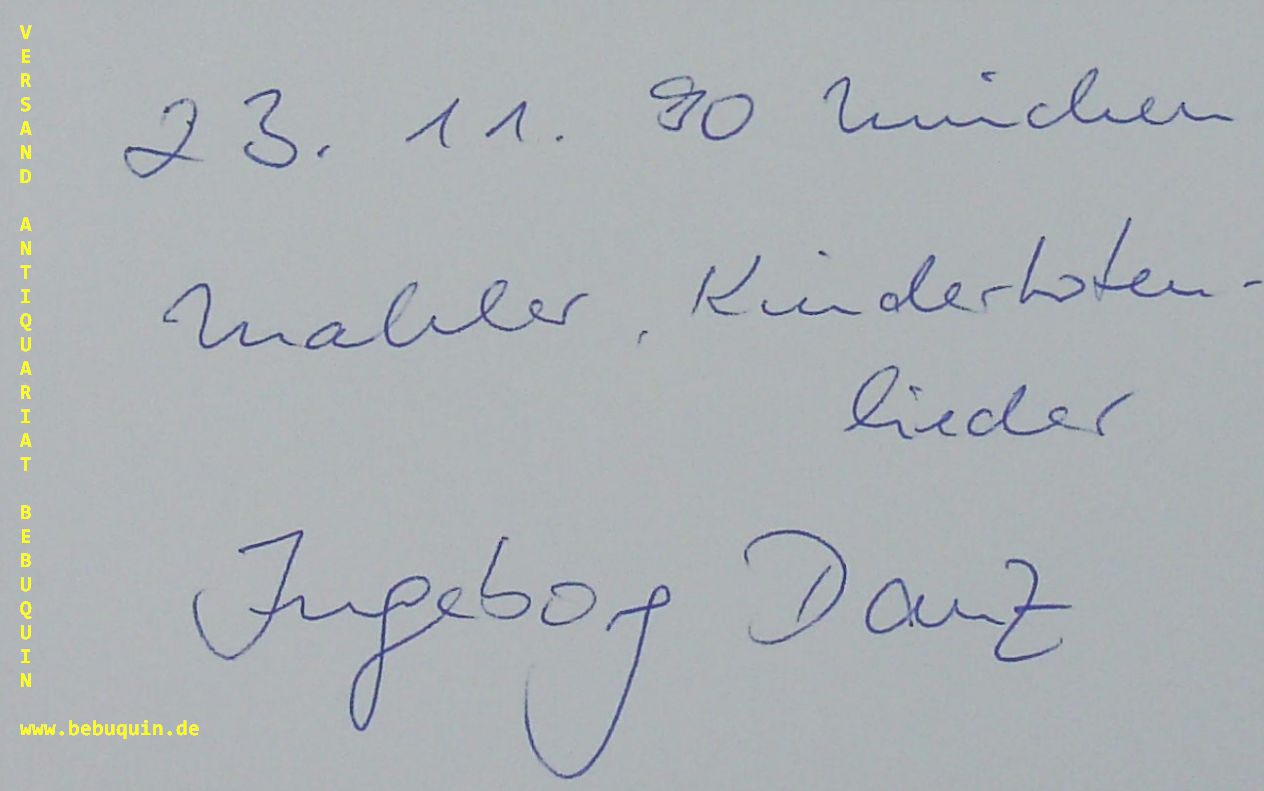 VERSAND ANTIQUARIAT BEBUQUIN
23. 11. 90 München
Mahler, Kindertoten-
lieder
Ingeborg Danz
www.bebuquin.de